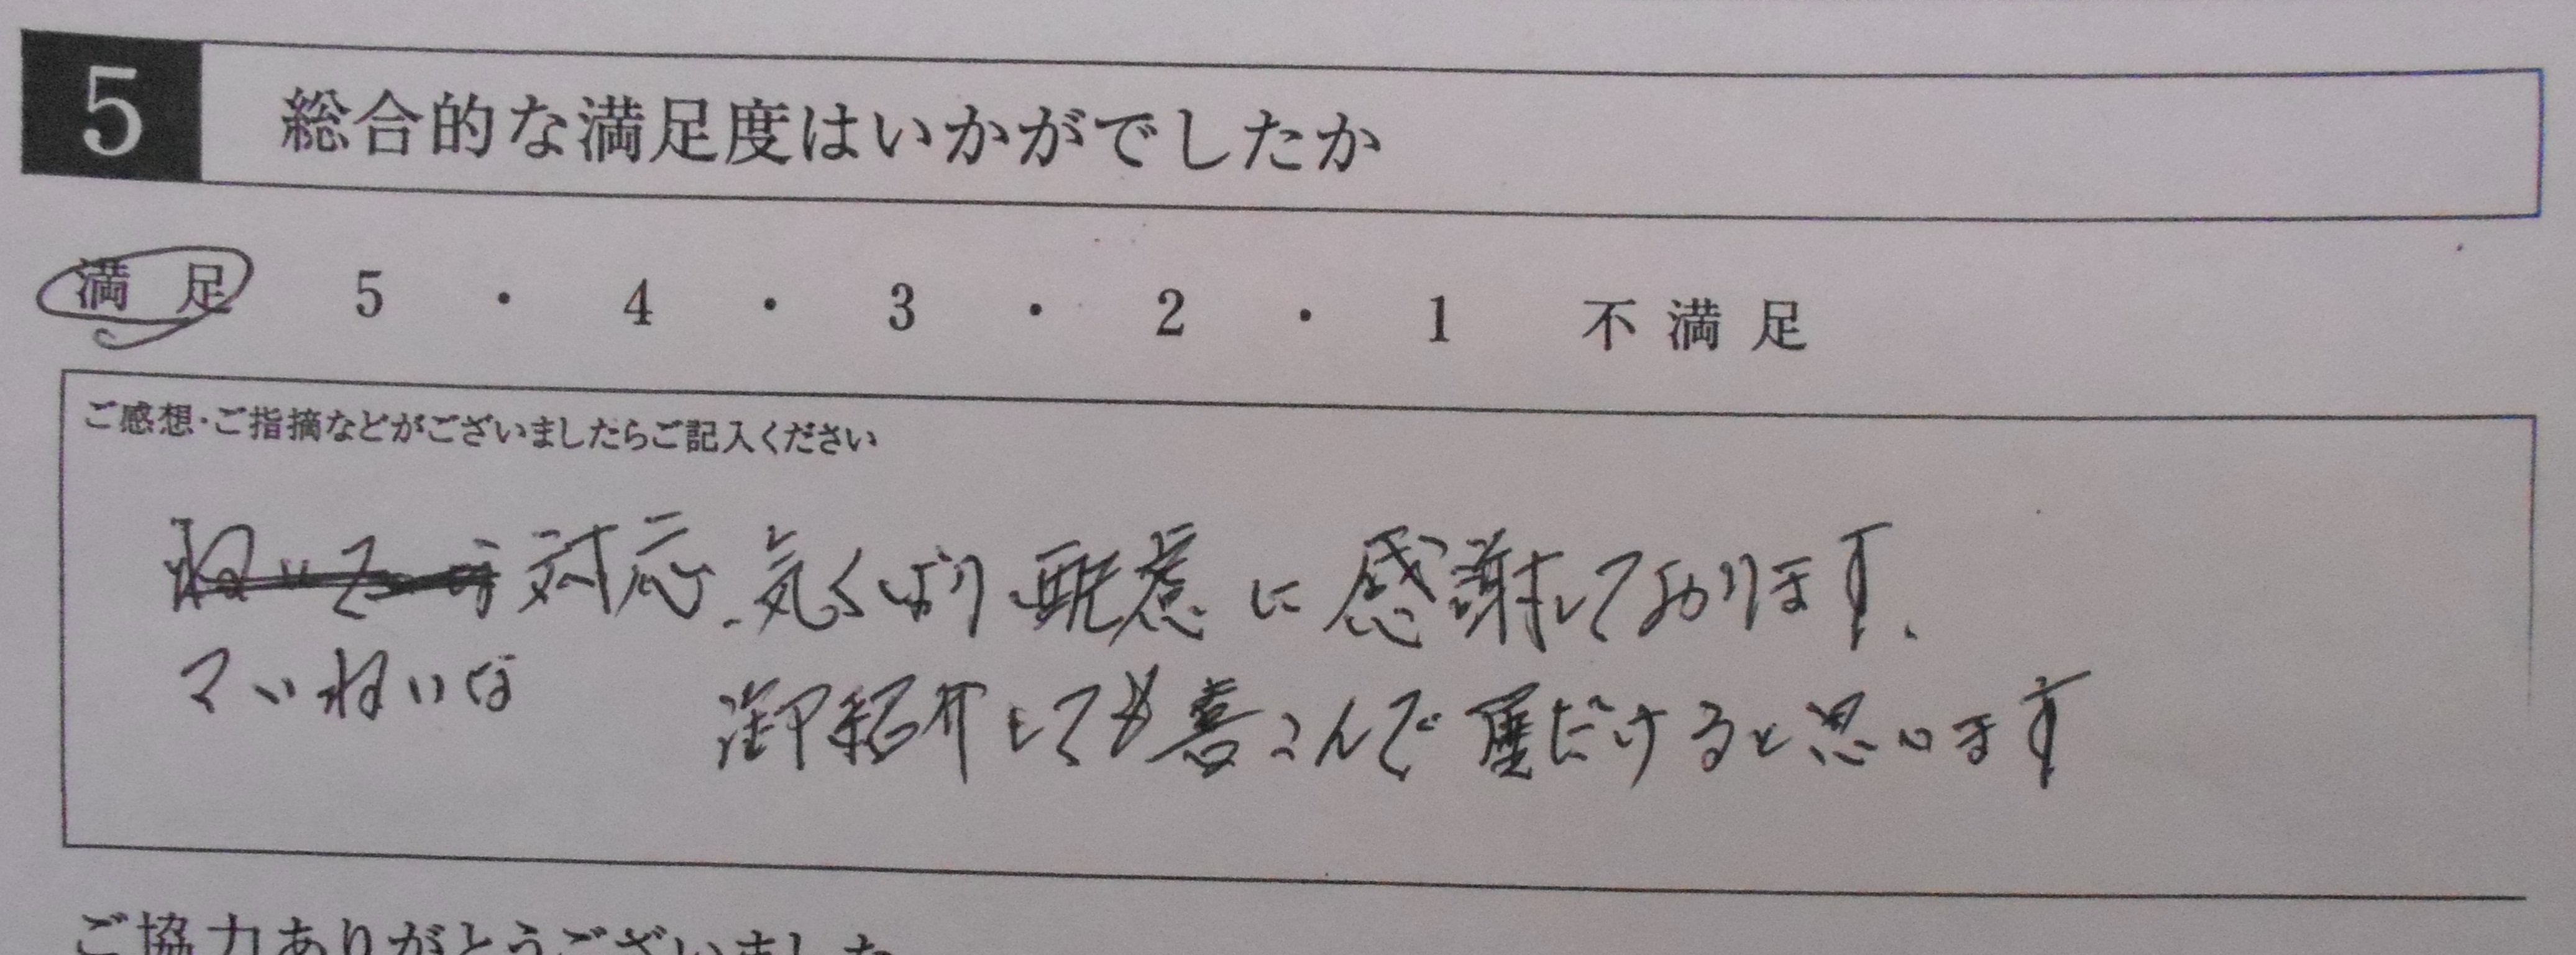 5 総合的な満足度はいかがでしたか
満足 5 ・ 4 ・ 3 ・ 2 ・ 1 不満足
ご感想・ご指摘などがございましたらご記入ください
対応、気くばり配慮に感謝しております。
ていねいな
御紹介しても喜こんで頂だけると思います
ご協力ありがとうございました